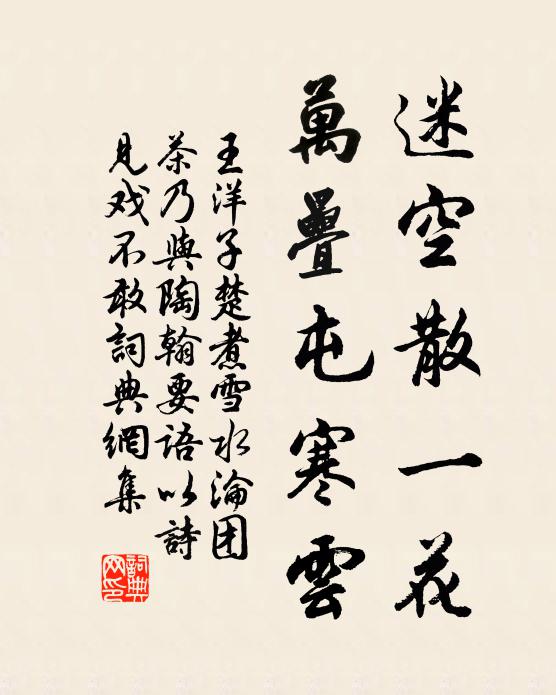 迷空散一花
萬疊屯寒雲
王洋子楚煮雪水淪团
茶乃與陶翰要语以詩
見戏不敢詞典網集
詞典网印